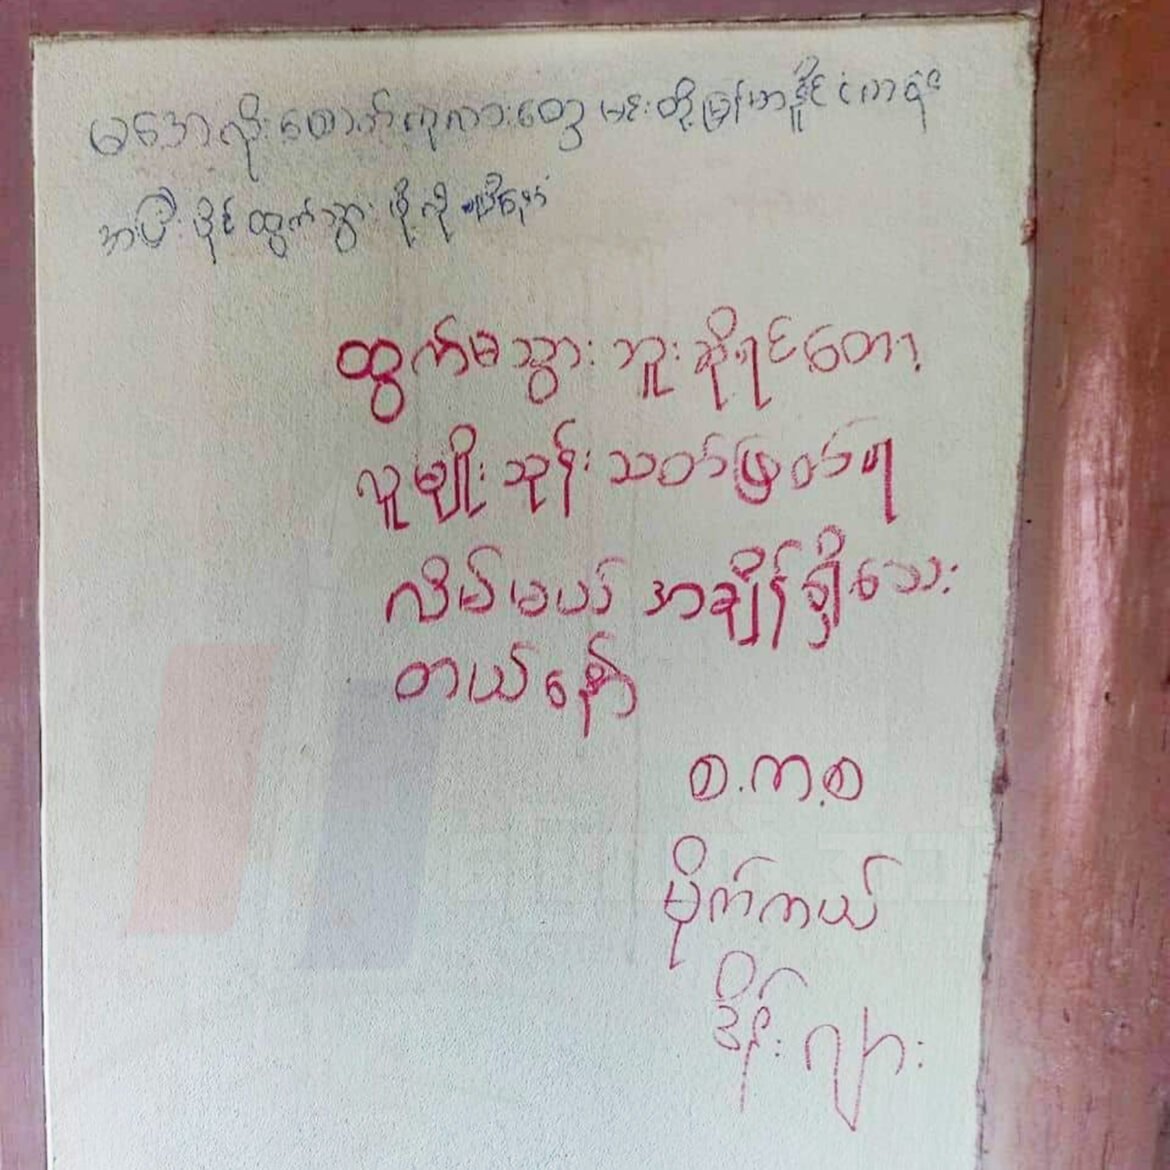 မအေလိုး ခေါက်ကုလားတွေ မင်းတို့ မြန်မာနိုင်ငံကရန်
အပြီးပိုင်ထွက်သွားဖို့လို
ထွက်မသွားဘူးဆိုရင်တော့
လူမျိုးသုန်းသတ်ဖြတ်ရ
လိမ့်မယ် အချိန်ရှိသေး
တယ်နော်
စ.ကာ.စ
မိုက်ကယ်